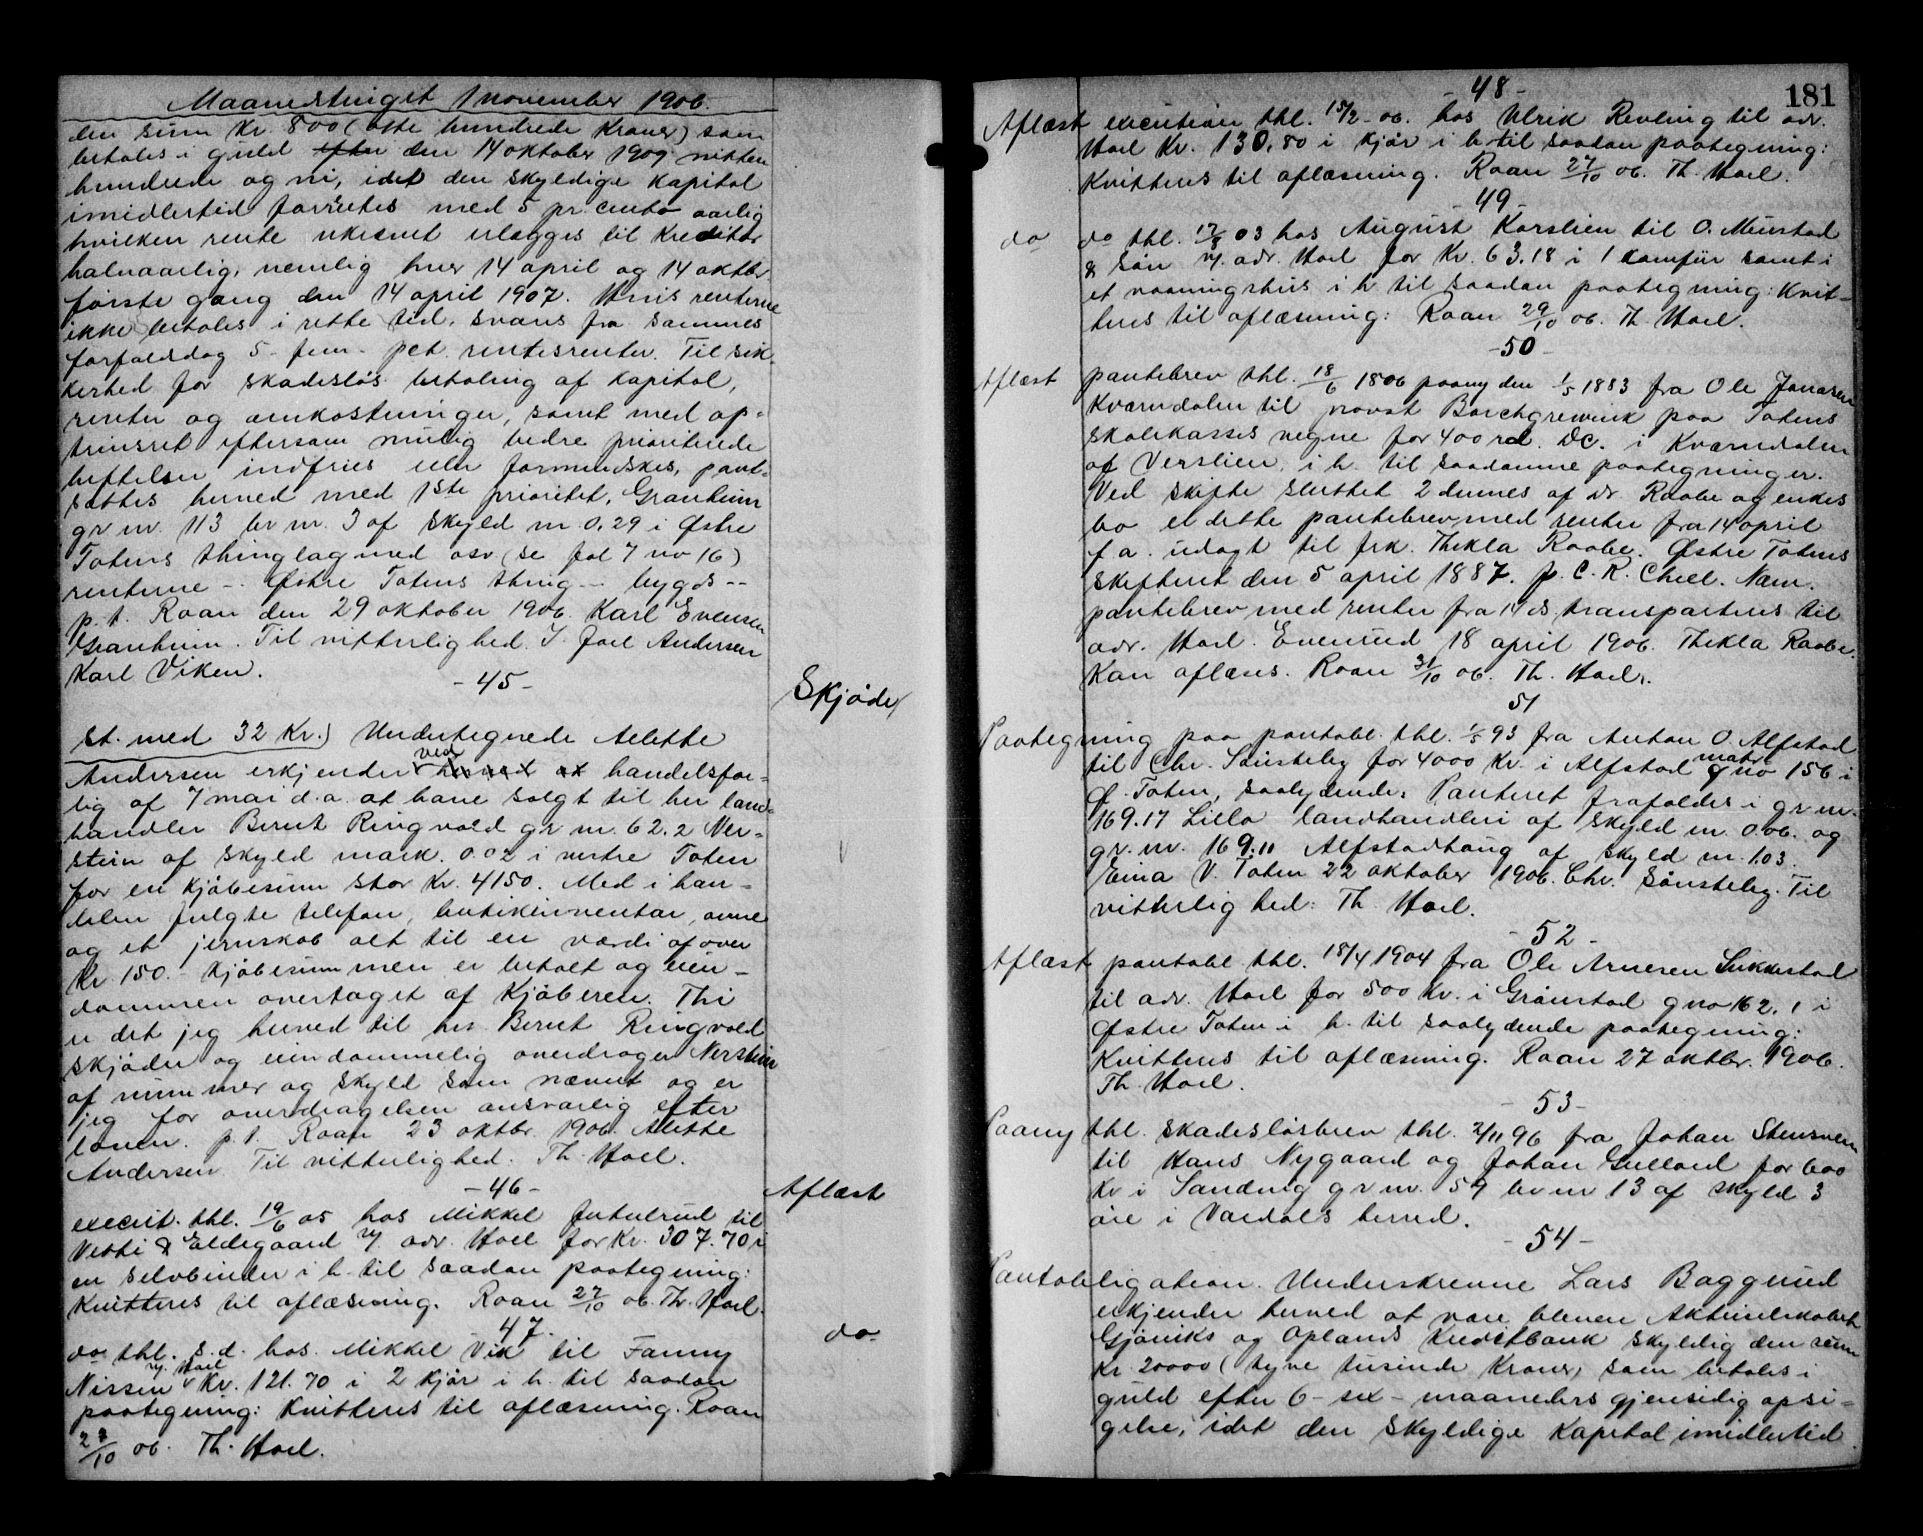 Maanedstinget 1 november 1906.
den sum Kr. 800 (otte hundrede Kroner) som
betales i guld efter den 14 oktober 1909 nitten
hundrede og ni, idet den skyldige Kapital
imidlertid forrentes med 5 pr. cento aarlig
hvilken rente ukrævet erlægges til Kreditor
halvaarlig, nemlig hver 14 april og 14 oktbr.
første gang den 14 april 1907. Hvis renterne
ikke betales i rette tid, svares fra sammes
forfaldsdag 5 - fem - pct. rentesrenter. Til sik-
kerhed for skadesløs betaling af Kapital,
renter og omkostninger, samt med op-
trinsret eftersom mulig bedre prioriterede
heftelser indfries eller formindskes, pant-
sættes herved med 1ste prioritet, Granheim
gr. nr. 113 br nr. 3 af skyld m. 0,29 i Østre
Totens thinglag med osv. (se fol 7 no 16)
renterne - Østre Totens thing - bygds -
p. t. Raan den 29 oktober 1906. Karl Evensen
Granheim. Til vitterlighed. S. Joel Andersen
Karl Viken.
- 45 -
Skjøde
St. med 32 Kr.) Undertegnede Alette
Andersen erkjender ved herved at handelsfor-
lig af 7 mai d. a. at have solgt til hr. land-
handler Bernt Ringvold gr nr. 62.2 Ner-
stein af skyld mark. 0.02 i vestre Toten
for en kjøbesum stor Kr. 4150. Med i han-
delen fulgte telefon, butikinventar, ovne
og et jernskab alt til en værdi af over
Kr 150.- Kjøbesummen er betalt og eien-
dommen overtaget af Kjøberen. Thi
er det jeg herved til hr. Bernt Ringvold
skjøder og eiendommelig overdrager Nerstein
af nummer og skyld som nævnt og er
jeg for overdragelsen ansvarlig efter
loven. p. t. Raan 23 oktbr. 1906. Alette
Andersen. Til vitterlighed. Th. Hoel.
- 46 -
Aflæst
execut. thl. 19/6 05 hos Mikkel Jutulrud til
Vesti & Eldegaard v/ adv. Hoel for Kr. 307.70 i
en selvbinder i h. til saadan paategning:
Kvitteres til aflæsning. Raan 27/10 06. Th. Hoel.
- 47 -
do
do thl. s. d. hos Mikkel Vik til Fanny
Nissen v/ Hoel Kr. 121.70 i 2 kjør i h. til saadan
paategning: Kvitteres til aflæsning. Raan
27/10 06. Th. Hoel.
181
- 48 -
Aflæst execution thl. 15/2 - 06. hos Ulrik Revling til adv.
Hoel Kr. 130,80 i kjør i h. til saadan paategning:
Kvitteres til aflæsning. Raan 27/10 06. Th. Hoel.
- 49 -
do do thl. 17/8 03 hos August Korslien til O. Mustad
& Søn v/ adv. Hoel for Kr. 63.18 i 1 komfür samt i
et vaaningshus i h til saadan paategning: Kvit-
teres til aflæsning: Raan 29/10 06. Th. Hoel.
- 50 -
Aflæst pantebrev thl. 18/6 1806 paany den 1/5 1883 fra Ole Jonsen
Kværndalen til provst Borchgrevink paa Totens
skolekasses vegne for 400 rd. DC. i Kværndalen
af Verslien, i h. til saadanne paategninger.
Ved skifte sluttet 2 dennes af dr. Raabe og enkes
bo er dette pantebrev med renter fra 14 april
f a. udlagt til frk. Thekla Raabe. Østre Totens
skifteret den 5 april 1887. J. C. R. Chell. Næv.
pantebrev med renter fra 14 ds. transporteres til
adv. Hoel. Evenrud 18 april 1906. Thekla Raabe.
Kan aflæses. Raan 31/10 06. Th. Hoel.
51
Paategning paa pantobl. thl. 1/5 93 fra Anton O. Alfstad
til Chr. Sønsteby for 4000 Kr. i Alfstad matr. gno 156 i
Ø. Toten, saalydende: Panteret frafaldes i gr nr.
169.17 Lillo landhandleri af skyld m. 0.06. og
gr. nr. 169.11 Alfstadhaug af skyld m. 1.03.
Eina V. Toten 22 oktober 1906. Chr. Sønsteby. Til
vitterlighed: Th. Hoel.
- 52 -
Aflæst pantobl. thl. 18/4 1904 fra Ole Arnesen Sukkestad
til adv. Hoel for 500 Kr. i Grønstad gno 162. 1 i
Østre Toten i h. til saalydende paategning:
Kvitteres til aflæsning. Raan 27 oktbr. 1906.
Th. Hoel.
- 53 -
Paany thl. skadesløsbrev thl. 2/11 96 fra Johan Stensveen
til Hans Nygaard og Johan Gullord for 600
Kr i Sandvig gr nr. 59 br nr 13 af skyld 3
øre i Vardals herred.
- 54 -
Pantobligation. Underskrevne Lars Baggerud
erkjender herved at være bleven Aktieselskabet
Gjøviks og Oplands Kreditbank skyldig den sum
Kr. 20000 (tyve tusinde Kroner) som betales i
guld efter 6 - sex - maaneders gjensidig opsi-
gelse, idet den skyldige Kapital imidlertid